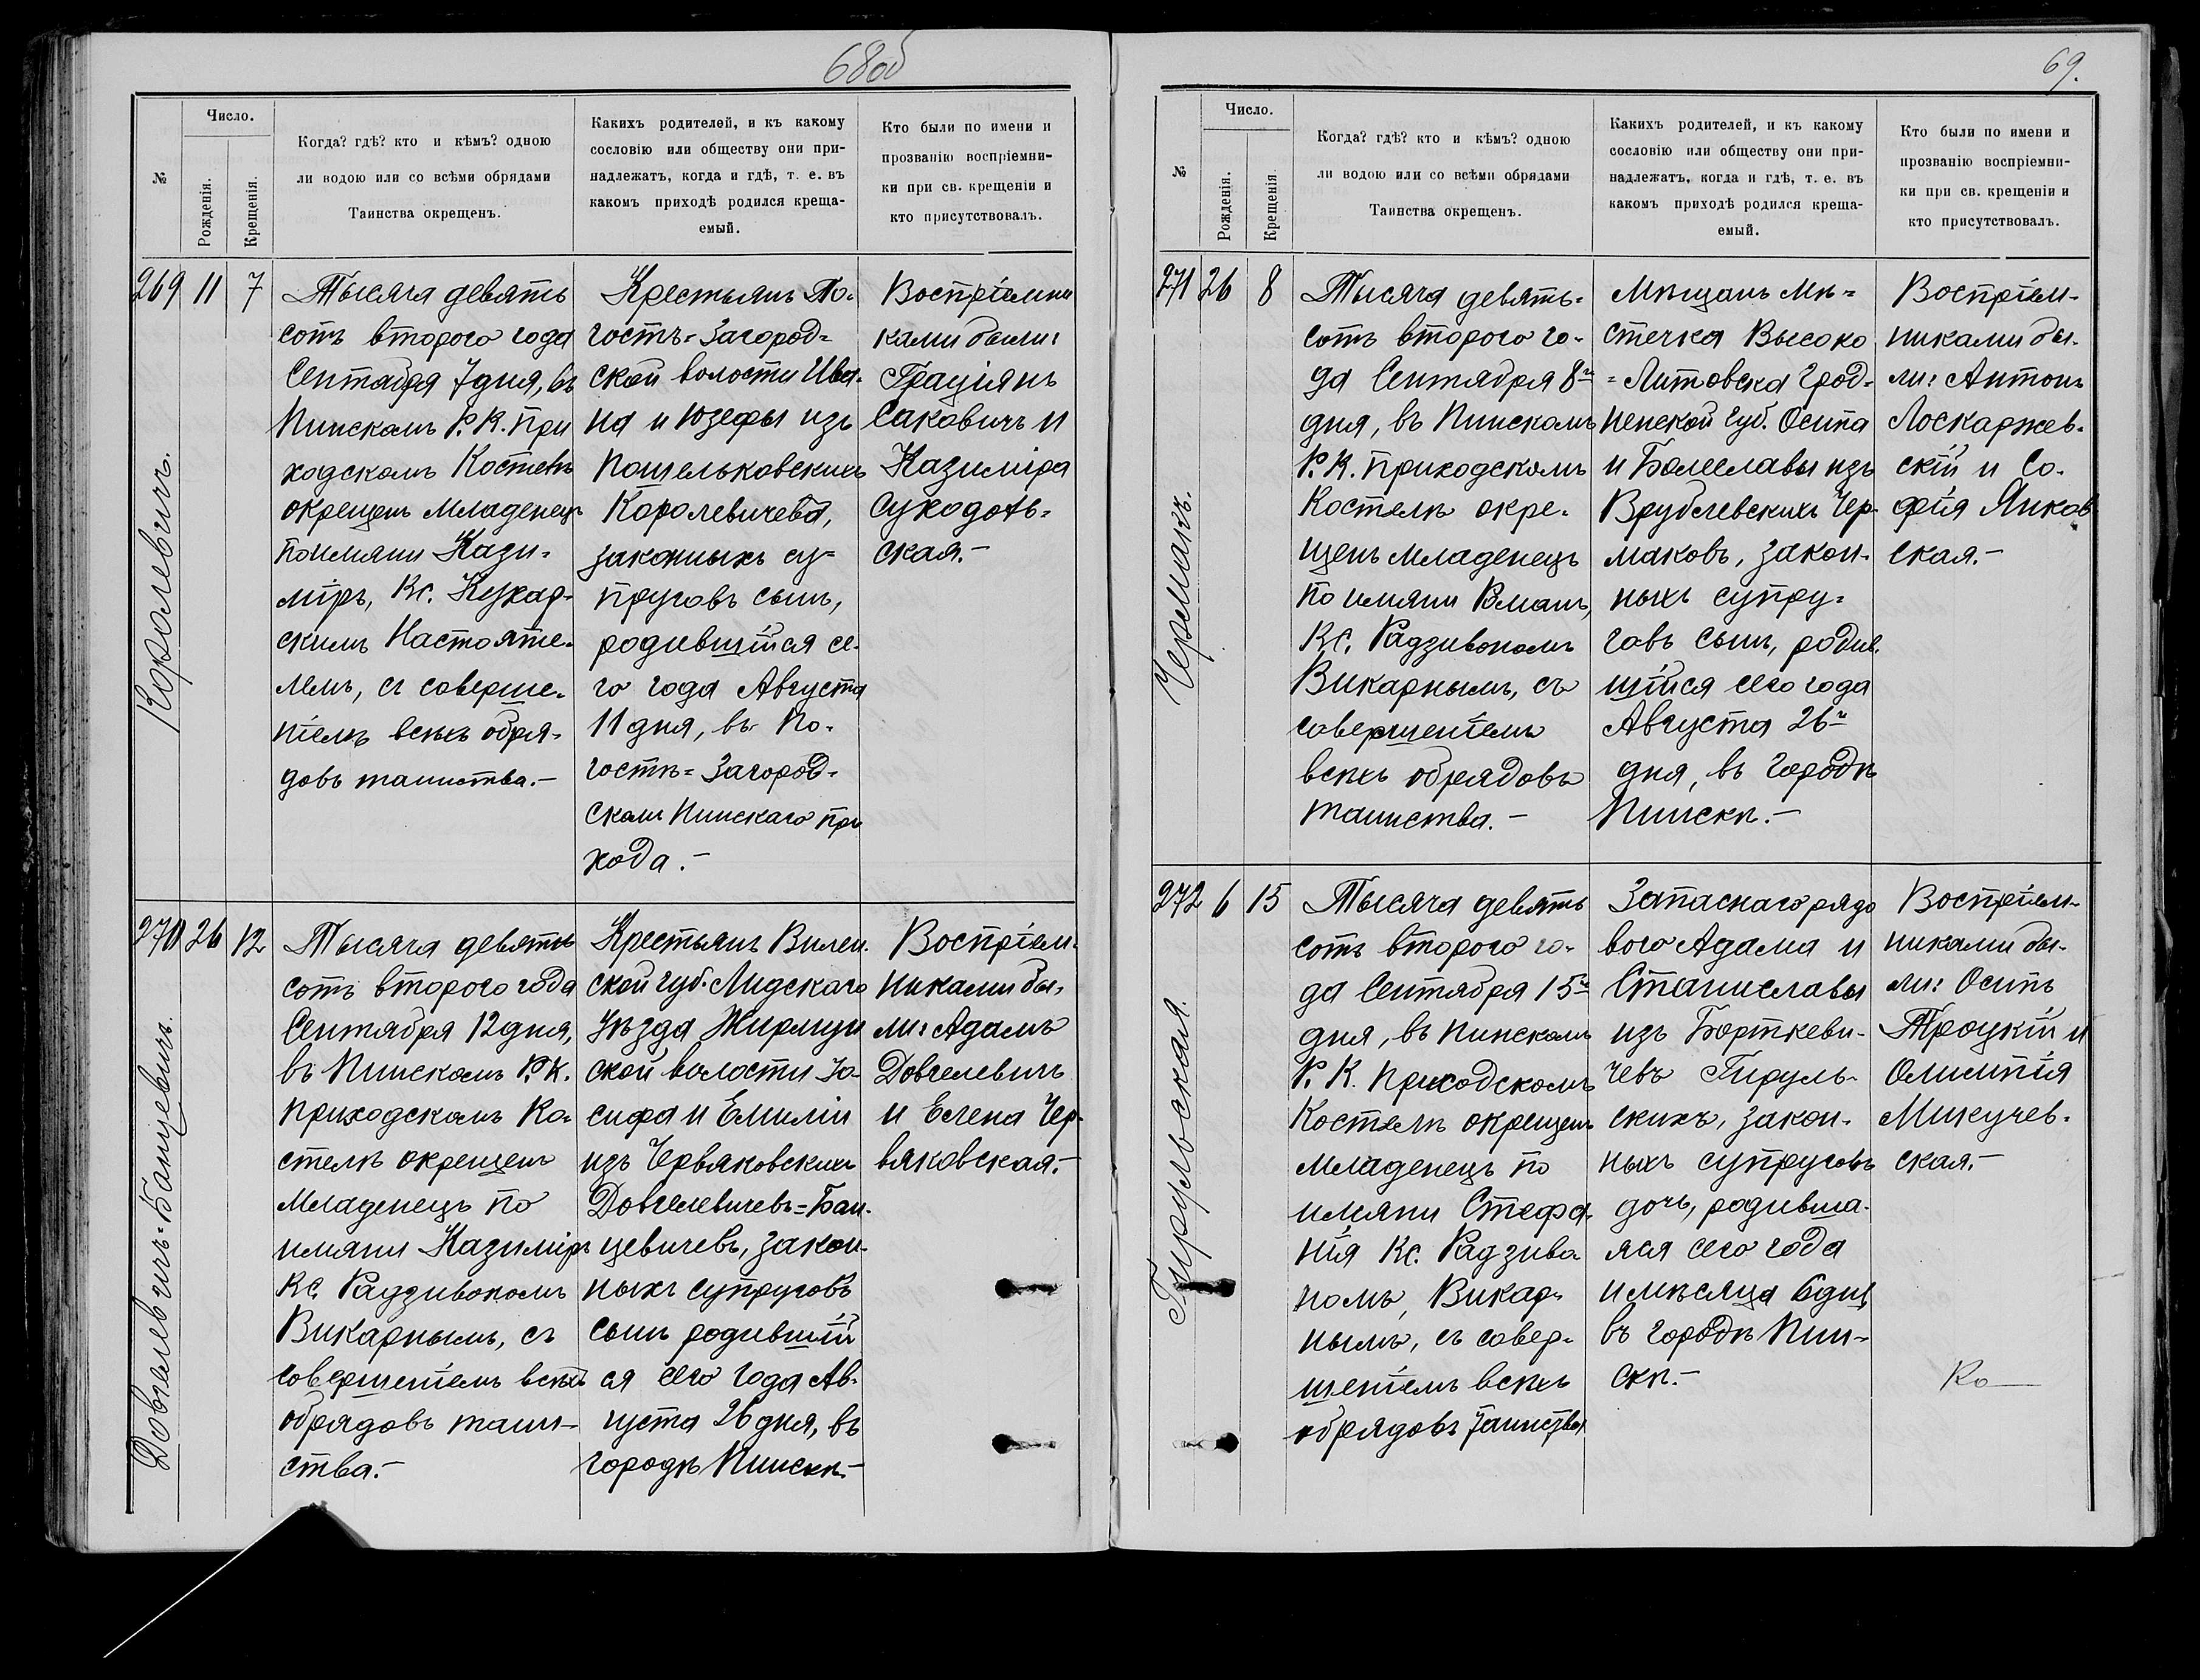 68об
№
Число.
Рожденія.
Крещенія.
Когда? гдѣ? кто и кѣмъ? одною
ли водою или со всѣми обрядами
Таинства окрещенъ.
Какихъ родителей, и къ какому
сословію или обществу они при-
надлежатъ, когда и гдѣ, т. е. въ
какомъ приходѣ родился креща-
емый.
Кто были по имени и
прозванію воспріемни-
ки при св. крещеніи и
кто присутствовалъ.
269 11 7
Королевичъ.
Тысяча девять
сотъ второго года
Сентября 7 дня, въ
Пинскомъ Р. К. При
ходскомъ Костелѣ
окрещенъ Младенецъ
по имяни Кази-
міръ, Кс. Кухар-
скимъ Настояте-
лемъ, съ соверше-
ніемъ всѣхъ обря-
довъ таинства.-
Крестьянъ По-
гостъ-Загород-
ской волости Ива-
на и Юзефы изъ
Пошельковскихъ
Королевичева,
законныхъ су-
пруговъ сынъ,
родившійся се-
го года Августа
11 дня, въ По-
гостѣ-Загород-
скомъ Пинскаго при
хода.-
Воспріемни
ками были:
Граціянъ
Саковичъ и
Казиміра
Суходоль-
ская.-
270 26 12
Довгелевичъ-Банцевичъ.
Тысяча девять
сотъ второго года
Сентября 12 дня,
въ Пинскомъ Р. К.
приходскомъ Ко-
стелѣ окрещенъ
Младенецъ по
имяни Казиміръ
Кс. Радзивономъ
Викарнымъ, съ
совершеніемъ всѣхъ
обрядовъ таин-
ства.-
Крестьянъ Вилен-
ской губ. Лидскаго
Уѣзда Жирмун
ской волости Іо-
сифа и Емиліи
изъ Червяковскихъ
Довгелевичевъ-Бан-
цевичевъ, закон-
ныхъ супруговъ
сынъ родившій
ся сего года Ав-
густа 26 дня, въ
городѣ Пинскѣ.-
Воспріем-
никами бы-
ли: Адамъ
Довгелевичъ
и Елена Чер-
вяковская.-
69.
№
Число.
Рожденія.
Крещенія
Когда? гдѣ? кто и кѣмъ? одною
ли водою или со всѣми обрядами
Таинства окрещенъ.
Какихъ родителей, и къ какому
сословію или обществу они при-
надлежатъ, когда и гдѣ, т. е. въ
какомъ приходѣ родился креща-
емый.
Кто были по имени и
прозванію воспріемни-
ки при св. крещеніи и
кто присутствовалъ.
271 26 8
Чермакъ.
Тысяча девять-
сотъ второго го-
да Сентября 8го
дня, въ Пинскомъ
Р. К. Приходскомъ
Костелѣ окре-
щенъ Младенецъ
по имяни
Кс. Радзивономъ
Викарнымъ, съ
совершеніемъ
всѣхъ обрядовъ
таинства.-
Мѣщанъ Мѣ-
стечка Высоко
-Литовска Грод-
ненской губ. Осипа
и Болеславы изъ
Врублевскихъ Чер-
маковъ, закон-
ныхъ супру-
говъ сынъ, родив-
шійся сего года
Августа 26го
дня, въ городѣ
Пинскѣ.-
Воспріем-
никами бы-
ли: Антонъ
Лоскаржев-
скій и Со-
фія Янков
ская.-
272 6 15
Гирульская.
Тысяча девять
сотъ второго го-
да Сентября 15го
дня, въ Пинскомъ
Р. К. Приходскомъ
Костелѣ окрещенъ
Младенецъ по
имяни Стефа-
нія Кс. Радзиво
номъ, Викар-
нымъ, съ совер-
шеніемъ всѣхъ
обрядовъ таинства
Запаснаго рядо
вого Адама и
Станиславы
изъ Борткеви-
чевъ Гируль-
скихъ, закон-
ныхъ супруговъ
дочь, родивша-
яся сего года
и мѣсяца 6 дня
въ городѣ Пин-
скѣ.-
Воспріем-
никами бы-
ли: Осипъ
Троцкій и
Олимпія
Микучев-
ская.-
Ко